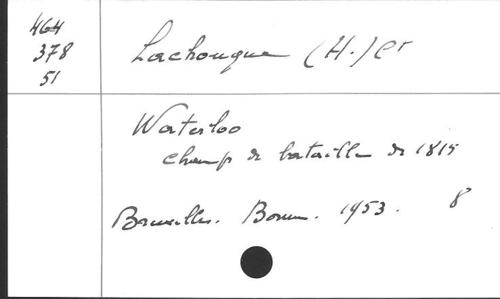 464
378
51
Lachouque (H.) Ct
Waterloo
champ de bataille de 1815
Bruxelles. 1953. 8